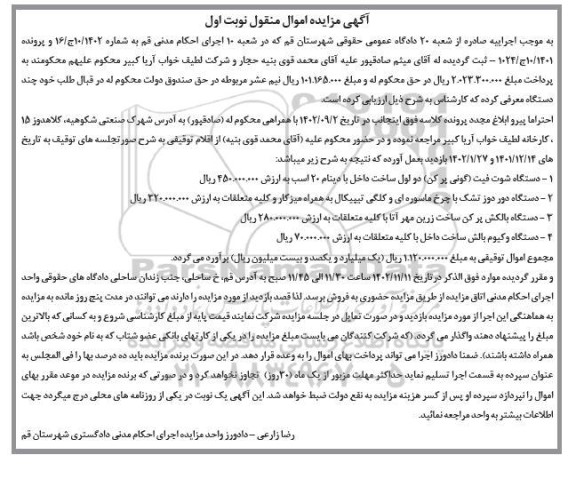 آگهی مزایده اموال منقول نوبت اول
به موجب اجراییه صادره از شعبه ۲۰ دادگاه عمومی حقوقی شهرستان قم که در شعبه ۱۰ اجرای احکام مدنی قم به شماره ۱۰/۱۴۰۲ج/۱۶ و پرونده
۱۰/۱۴۰۱ج/۱۰۲۴ – ثبت گردیده له آقای میثم صادقپور علیه آقای محمد قوی بنیه حجار و شرکت لطیف خواب آریا کبیر محکوم علیهم محکومند به
پرداخت مبلغ ۲.۰۲۳.۳۰۰.۰۰۰ ریال در حق محکوم له و مبلغ ۱۰۱.۱۶۵.۰۰۰ ریال نیم عشر مربوطه در حق صندوق دولت محکوم له در قبال طلب خود چند
دستگاه معرفی کرده که کارشناس به شرح ذیل ارزیابی کرده است.
احتراما پیرو ابلاغ مجدد پرونده کلاسه فوق اینجانب در تاریخ ۱۴۰۲/۰۹/۲ با همراهی محکوم له (صادقپور) به آدرس شهرک صنعتی شکوهیه، کلاهدوز ۱۵
، کارخانه لطیف خواب آریا کبیر مراجعه نموده و در حضور محکوم علیه (آقای محمد قوی بنیه) از اقلام توقیفی به شرح صورتجلسه های توقیف به تاریخ
های ۱۴۰۱/۱۲/۱۴ و ۱۴۰۲/۱/۲۷ بازدید بعمل آورده که نتیجه به شرح زیر میباشد:
۱ – دستگاه شوت فیت (گونی پر کن) دو لول ساخت داخل با دینام ۲۰ اسب به ارزش ۴۵۰.۰۰۰.۰۰۰ ریال
۲ – دستگاه دور دوز تشک با چرخ ماسوره ای و کلگی تیپیکال به همراه میز کار و کلیه متعلقات به ارزش ۳۲۰.۰۰۰.۰۰۰ ریال
۳ – دستگاه بالکش پر کن ساخت زرین مهر آتا با کلیه متعلقات به ارزش ۲۸۰.۰۰۰.۰۰۰ ریال
۴ – دستگاه وکیوم بالش ساخت داخل با کلیه متعلقات به ارزش ۷۰.۰۰۰.۰۰۰ ریال
مجموع اموال توقیفی به مبلغ ۱.۱۲۰.۰۰۰.۰۰۰ ریال (یک میلیارد و یکصد و بیست میلیون ریال) برآورد می گردد.
و مقرر گردیده موارد فوق الذکر در تاریخ ۱۴۰۲/۱۱/۱۱ ساعت ۱۱/۳۰ الی ۱۱/۴۵ صبح به آدرس قم، خ ساحلی، جنب زندان ساحلی دادگاه های حقوقی واحد
اجرای احکام مدنی اتاق مزایده از طریق مزایده حضوری به فروش برسد. لذا قصد بازدید از مورد مزایده را دارند می توانند در مدت پنج روز مانده به مزایده
به هماهنگی این اجرا از مورد مزایده بازدید و در صورت تمایل در جلسه مزایده شرکت نمایند. قیمت پایه از مبلغ کارشناسی شروع و به کسانی که بالاترین
مبلغ را پیشنهاد دهند واگذار می گردد، (که شرکت کنندگان می بایست مبلغ مزایده را در یکی از کارتهای بانکی عضو شتاب که به نام خود شخص باشد
همراه داشته باشند). ضمنا دادورز اجرا می تواند پرداخت بهای اموال را به وعده قرار دهد. در این صورت برنده مزایده باید ده درصد بها را فی المجلس به
عنوان سپرده به قسمت اجرا تسلیم نماید حداکثر مهلت مزبور از یک ماه (۳۰روز) تجاوز نخواهد کرد و در صورتی که برنده مزایده در موعد مقرر بهای
اموال را نپردازد سپرده او پس از کسر هزینه مزایده به نفع دولت ضبط خواهد شد. این آگهی یک نوبت در یکی از روزنامه های محلی درج میگردد جهت
اطلاعات بیشتر به واحد مراجعه نمائید.
رضا زارعی – دادورز واحد مزایده اجرای احکام مدنی دادگستری شهرستان قم